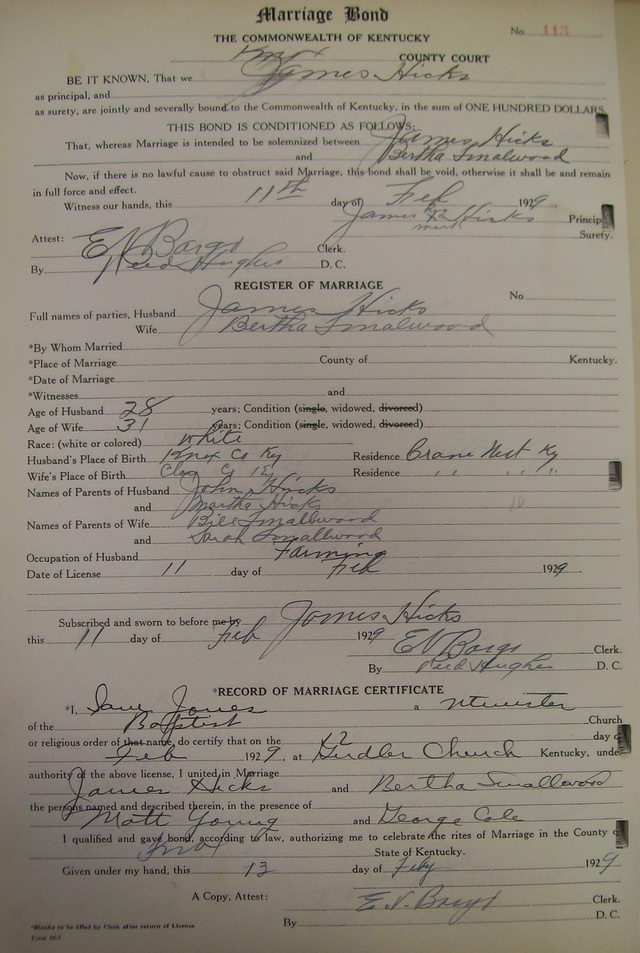 Marriage Bond
THE COMMONWEALTH OF KENTUCKY
No. 113
Knox COUNTY COURT
BE IT KNOWN, That we James Hicks
as principal, and
as surety, are jointly and severally bound to the Commonwealth of Kentucky, in the sum of ONE HUNDRED DOLLARS.
THIS BOND IS CONDITIONED AS FOLLOWS:
That, whereas Marriage is intended to be solemnized between James Hicks
and Bertha Smalwood
Now, if there is no lawful cause to obstruct said Marriage, this bond shall be void, otherwise it shall be and remain
in full force and effect.
Witness our hands, this 11th day of Feb 1929
James his x Hicks Princip
mark Surety.
Attest: Clerk.
By Reed Hughes D. C.
REGISTER OF MARRIAGE
No
Full names of parties, Husband James Hicks
Wife Bertha Smalwood
*By Whom Married
*Place of Marriage County of Kentucky.
*Date of Marriage
*Witnesses and
Age of Husband 28 years; Condition (single, widowed, divorced)
Age of Wife 31 years; Condition (single, widowed, divorced)
Race: (white or colored) white
Husband's Place of Birth Knox Co Ky Residence Crane Nest Ky
Wife's Place of Birth Clay Co Ky Residence " " " "
Names of Parents of Husband John Hicks
and Martha Hicks
Names of Parents of Wife Bill Smallwood
and Sarah Smallwood
Occupation of Husband Farming
Date of License 11 day of Feb 1929
Subscribed and sworn to before me by James Hicks
this 11 day of Feb 1929
Clerk.
By Reed Hughes D. C.
*RECORD OF MARRIAGE CERTIFICATE
*I, Jones a Minister
of the Baptist Church
or religious order of that name, do certify that on the 12 day o
Feb 1929, at Girdler Church Kentucky, under
authority of the above license, I united in Marriage
James Hicks and Bertha Smallwood
the persons named and described therein, in the presence of
Matt Young and George Cole
I qualified and gave bond, according to law, authorizing me to celebrate the rites of Marriage in the County o
Knox State of Kentucky.
Given under my hand, this 12 day of Feby 1929
A Copy, Attest: Clerk.
By D. C.
*Blanks to be filled by Clerk after return of License